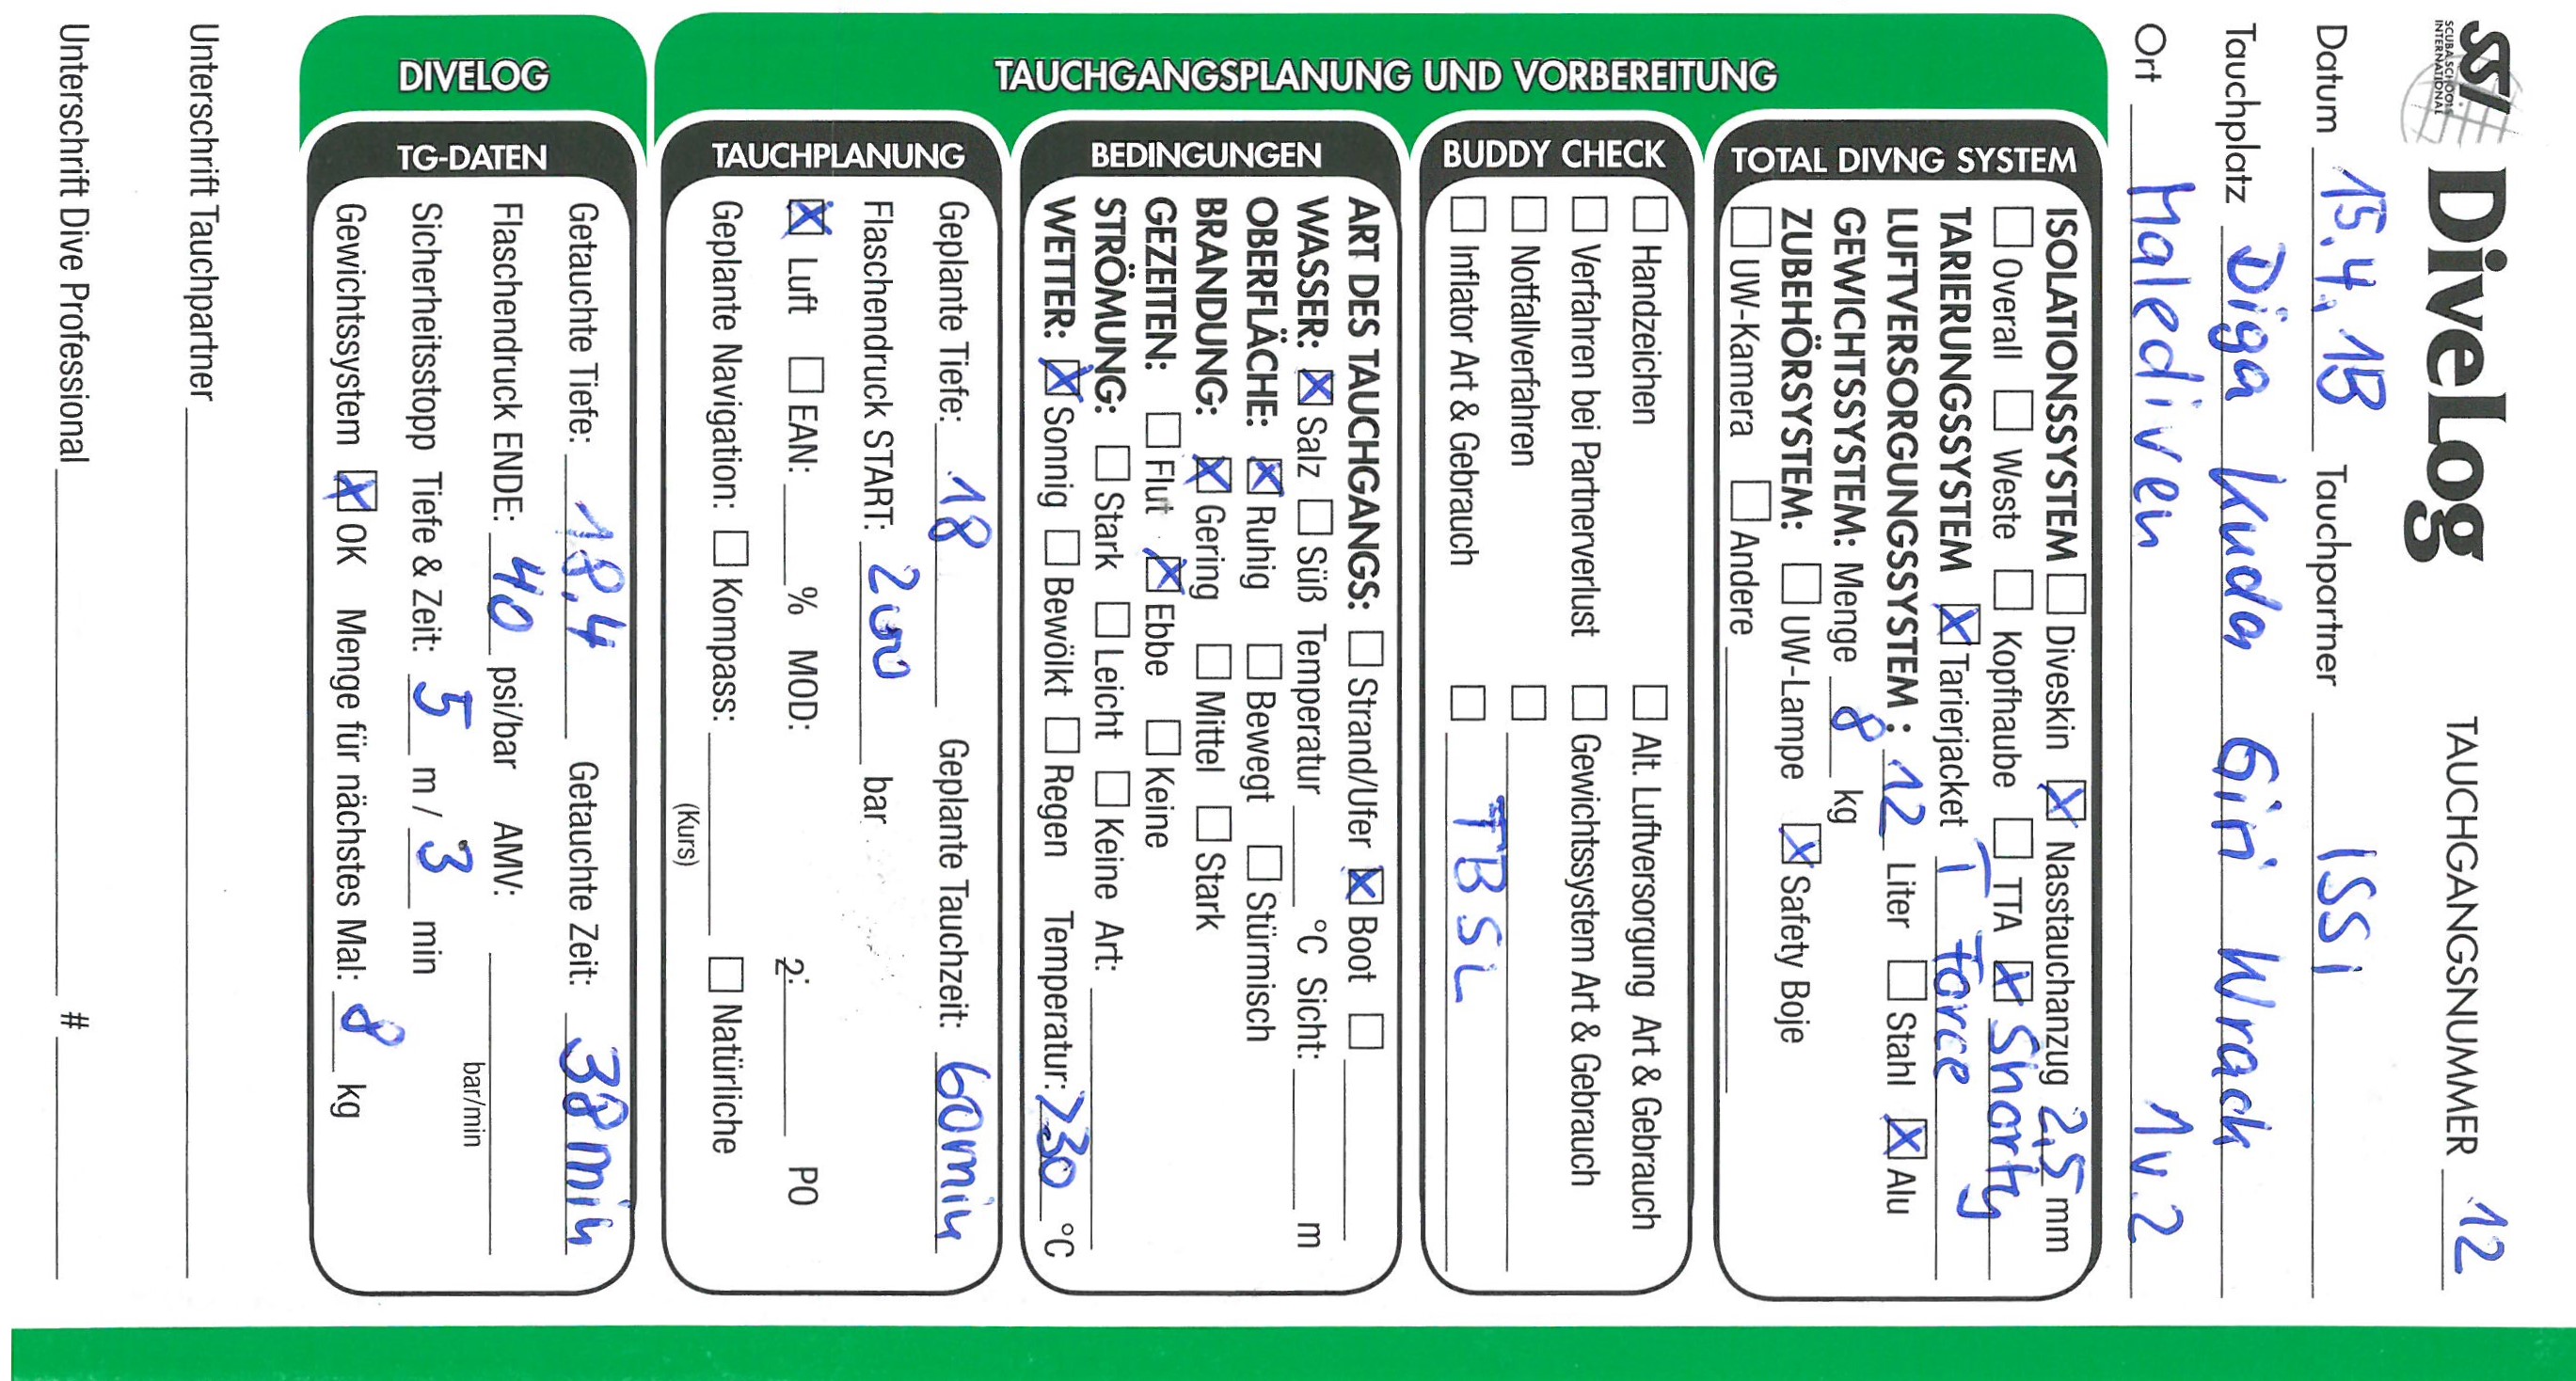 SSI
SCUBA SCHOOLS
INTERNATIONAL
DiveLog
TAUCHGANGSNUMMER 12
Datum 15.4.18 Tauchpartner ISSI
Tauchplatz Diga Kuda Giri Wrack
Ort Malediven 1v.2
TAUCHGANGSPLANUNG UND VORBEREITUNG
TOTAL DIVNG SYSTEM
ISOLATIONSSYSTEM ☐ Diveskin ☒ Nasstauchanzug 2,5 mm
☐ Overall ☐ Weste ☐ Kopfhaube ☐ TTA ☒ Shorty
TARIERUNGSSYSTEM ☒ Tarierjacket Force
LUFTVERSORGUNGSSYSTEM : 12 Liter ☐ Stahl ☒ Alu
GEWICHTSSYSTEM: Menge 8 kg
ZUBEHÖRSYSTEM: ☐ UW-Lampe ☒ Safety Boje
☐ UW-Kamera ☐ Andere
BUDDY CHECK
☐ Handzeichen ☐ Alt. Luftversorgung Art & Gebrauch
☐ Verfahren bei Partnerverlust ☐ Gewichtssystem Art & Gebrauch
☐ Notfallverfahren ☐
☐ Inflator Art & Gebrauch ☐ TBSL
BEDINGUNGEN
ART DES TAUCHGANGS: ☐ Strand/Ufer ☒ Boot ☐
WASSER: ☒ Salz ☐ Süß Temperatur °C Sicht: m
OBERFLÄCHE: ☒ Ruhig ☐ Bewegt ☐ Stürmisch
BRANDUNG: ☒ Gering ☐ Mittel ☐ Stark
GEZEITEN: ☐ Flut ☒ Ebbe ☐ Keine
STRÖMUNG: ☐ Stark ☐ Leicht ☐ Keine Art:
WETTER: ☒ Sonnig ☐ Bewölkt ☐ Regen Temperatur: >30 °C
TAUCHPLANUNG
Geplante Tiefe: 18 Geplante Tauchzeit: 60min
Flaschendruck START: 200 bar
☒ Luft ☐ EAN: % MOD: 2: PO
Geplante Navigation: ☐ Kompass: ☐ Natürliche
(Kurs)
DIVELOG
TG-DATEN
Getauchte Tiefe: 18,4 Getauchte Zeit: 38min
Flaschendruck ENDE: 40 psi/bar AMV: bar/min
Sicherheitsstopp Tiefe & Zeit: 5 m / 3 min
Gewichtssystem ☒ OK Menge für nächstes Mal: 8 kg
Unterschrift Tauchpartner
Unterschrift Dive Professional #